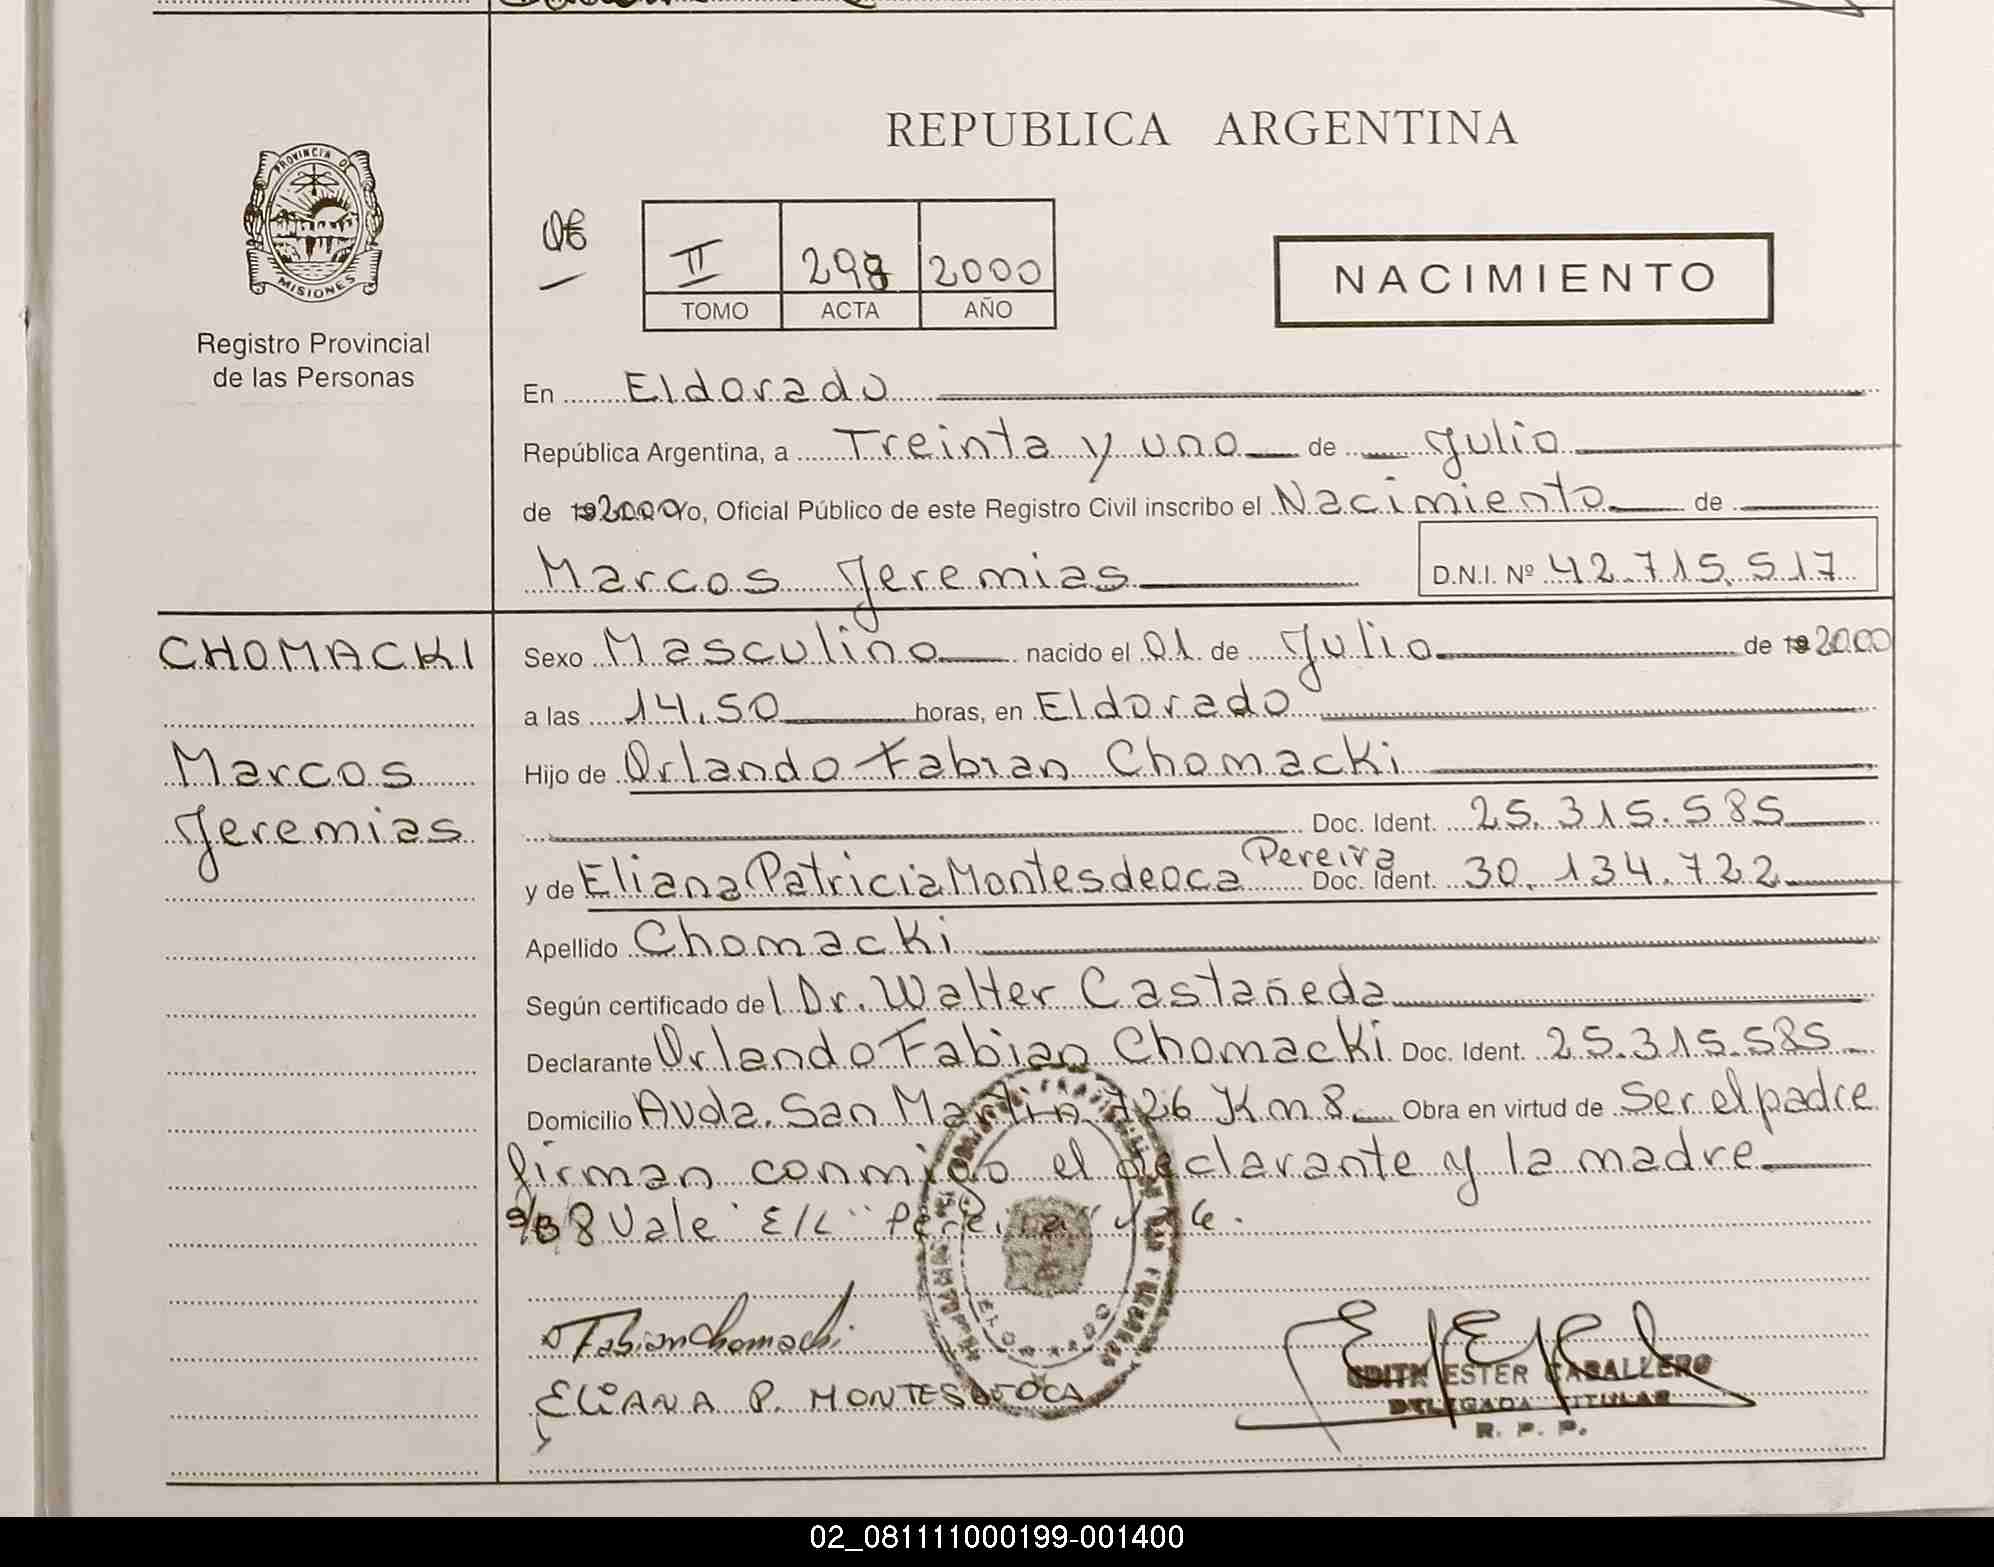 REPUBLICA ARGENTINA
PROVINCIA DE
MISIONES
Registro Provincial
de las Personas
II 298 2000
TOMO ACTA AÑO
NACIMIENTO
En Eldorado
República Argentina, a Treinta y uno de Julio
de 192000 Yo, Oficial Público de este Registro Civil inscribo el Nacimiento de
Marcos Jeremias D.N.I. Nº 42.715.517
CHOMACKI
Marcos
Jeremias
Sexo Masculino nacido el 01 de Julio de 192000
a las 14.50 horas, en Eldorado
Hijo de Orlando Fabian Chomacki
Doc. Ident. 25.315.585
y de Eliana Patricia Montesdeoca Pereira Doc. Ident. 30.134.722
Apellido Chomacki
Según certificado del Dr. Walter Castañeda
Declarante Orlando Fabian Chomacki Doc. Ident. 25.315.585
Domicilio Avda. San Martin 726 Km 8. Obra en virtud de Ser el padre
firman conmigo el declarante y la madre
s/b 8 Vale E/L "Pereira"
ELDORADO
Fabian Chomacki
ELIANA P. MONTESDEOCA
EDITH ESTER CABALLERO
DELEGADA TITULAR
R. P. P.
02_081111000199-001400